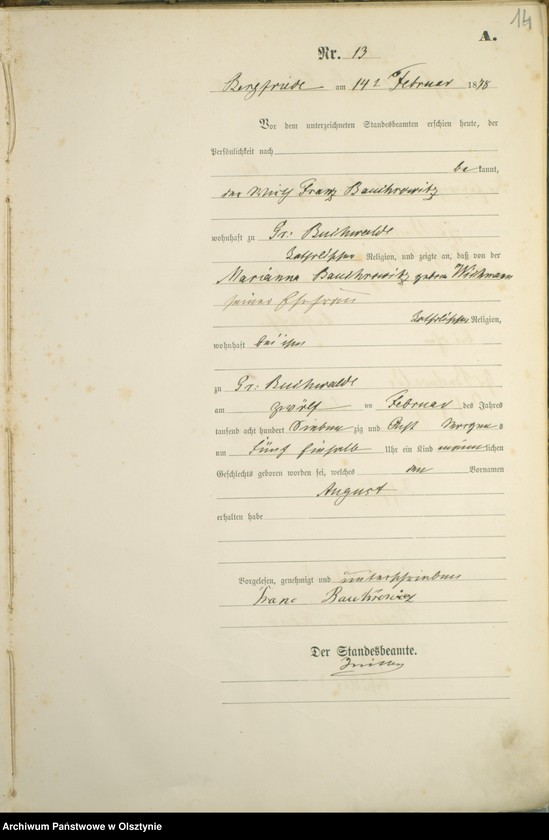 14
A.
Nr. 13
Bergfriede am 14ᵗ Februar 1878
Vor dem unterzeichneten Standesbeamten erschien heute, der
Persönlichkeit nach
be kannt,
der Wirth Franz Bauchrowitz
wohnhaft zu Gr. Buchwalde
katholischer Religion, und zeigte an, daß von der
Marianna Bauchrowitz geborn Wichmann
seiner Ehefrau
katholischer Religion,
wohnhaft bei ihm
zu Gr: Buchwalde
am zwölf ten Februar des Jahres
tausend acht hundert Sieben zig und Acht Morgens
um fünf einhalb Uhr ein Kind männlichen
Geschlechts geboren worden sei, welches den Vornamen
August
erhalten habe
Vorgelesen, genehmigt und unterschrieben
Franc
Der Standesbeamte.
Archiwum Państwowe w Olsztynie